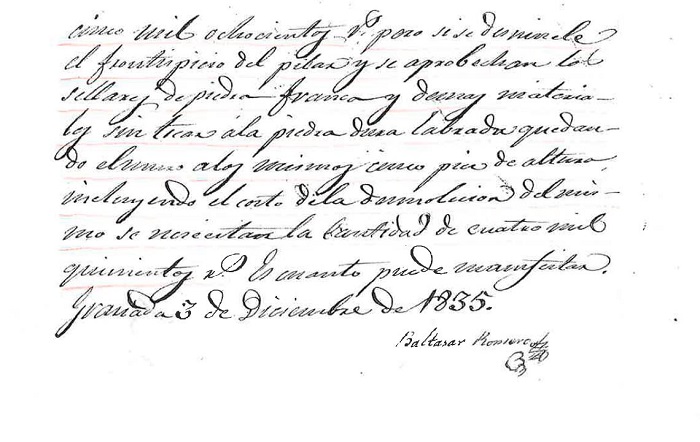 cinco mil ochocientos r.^s pero si se desminele
el frontispicio del pilar y se aprobechan los
sillares de piedra franca y demas materia-
les sin tocar á la piedra dura labrada quedan-
do el muro a los mismos cinco pies de altura,
incluyendo el costo de la demolicion del mis-
mo se necesitan la cantidad de cuatro mil
quinientos r.^s Es cuanto puede manifestar.
Granada 3 de Diciembre de 1835.
Baltasar Romero